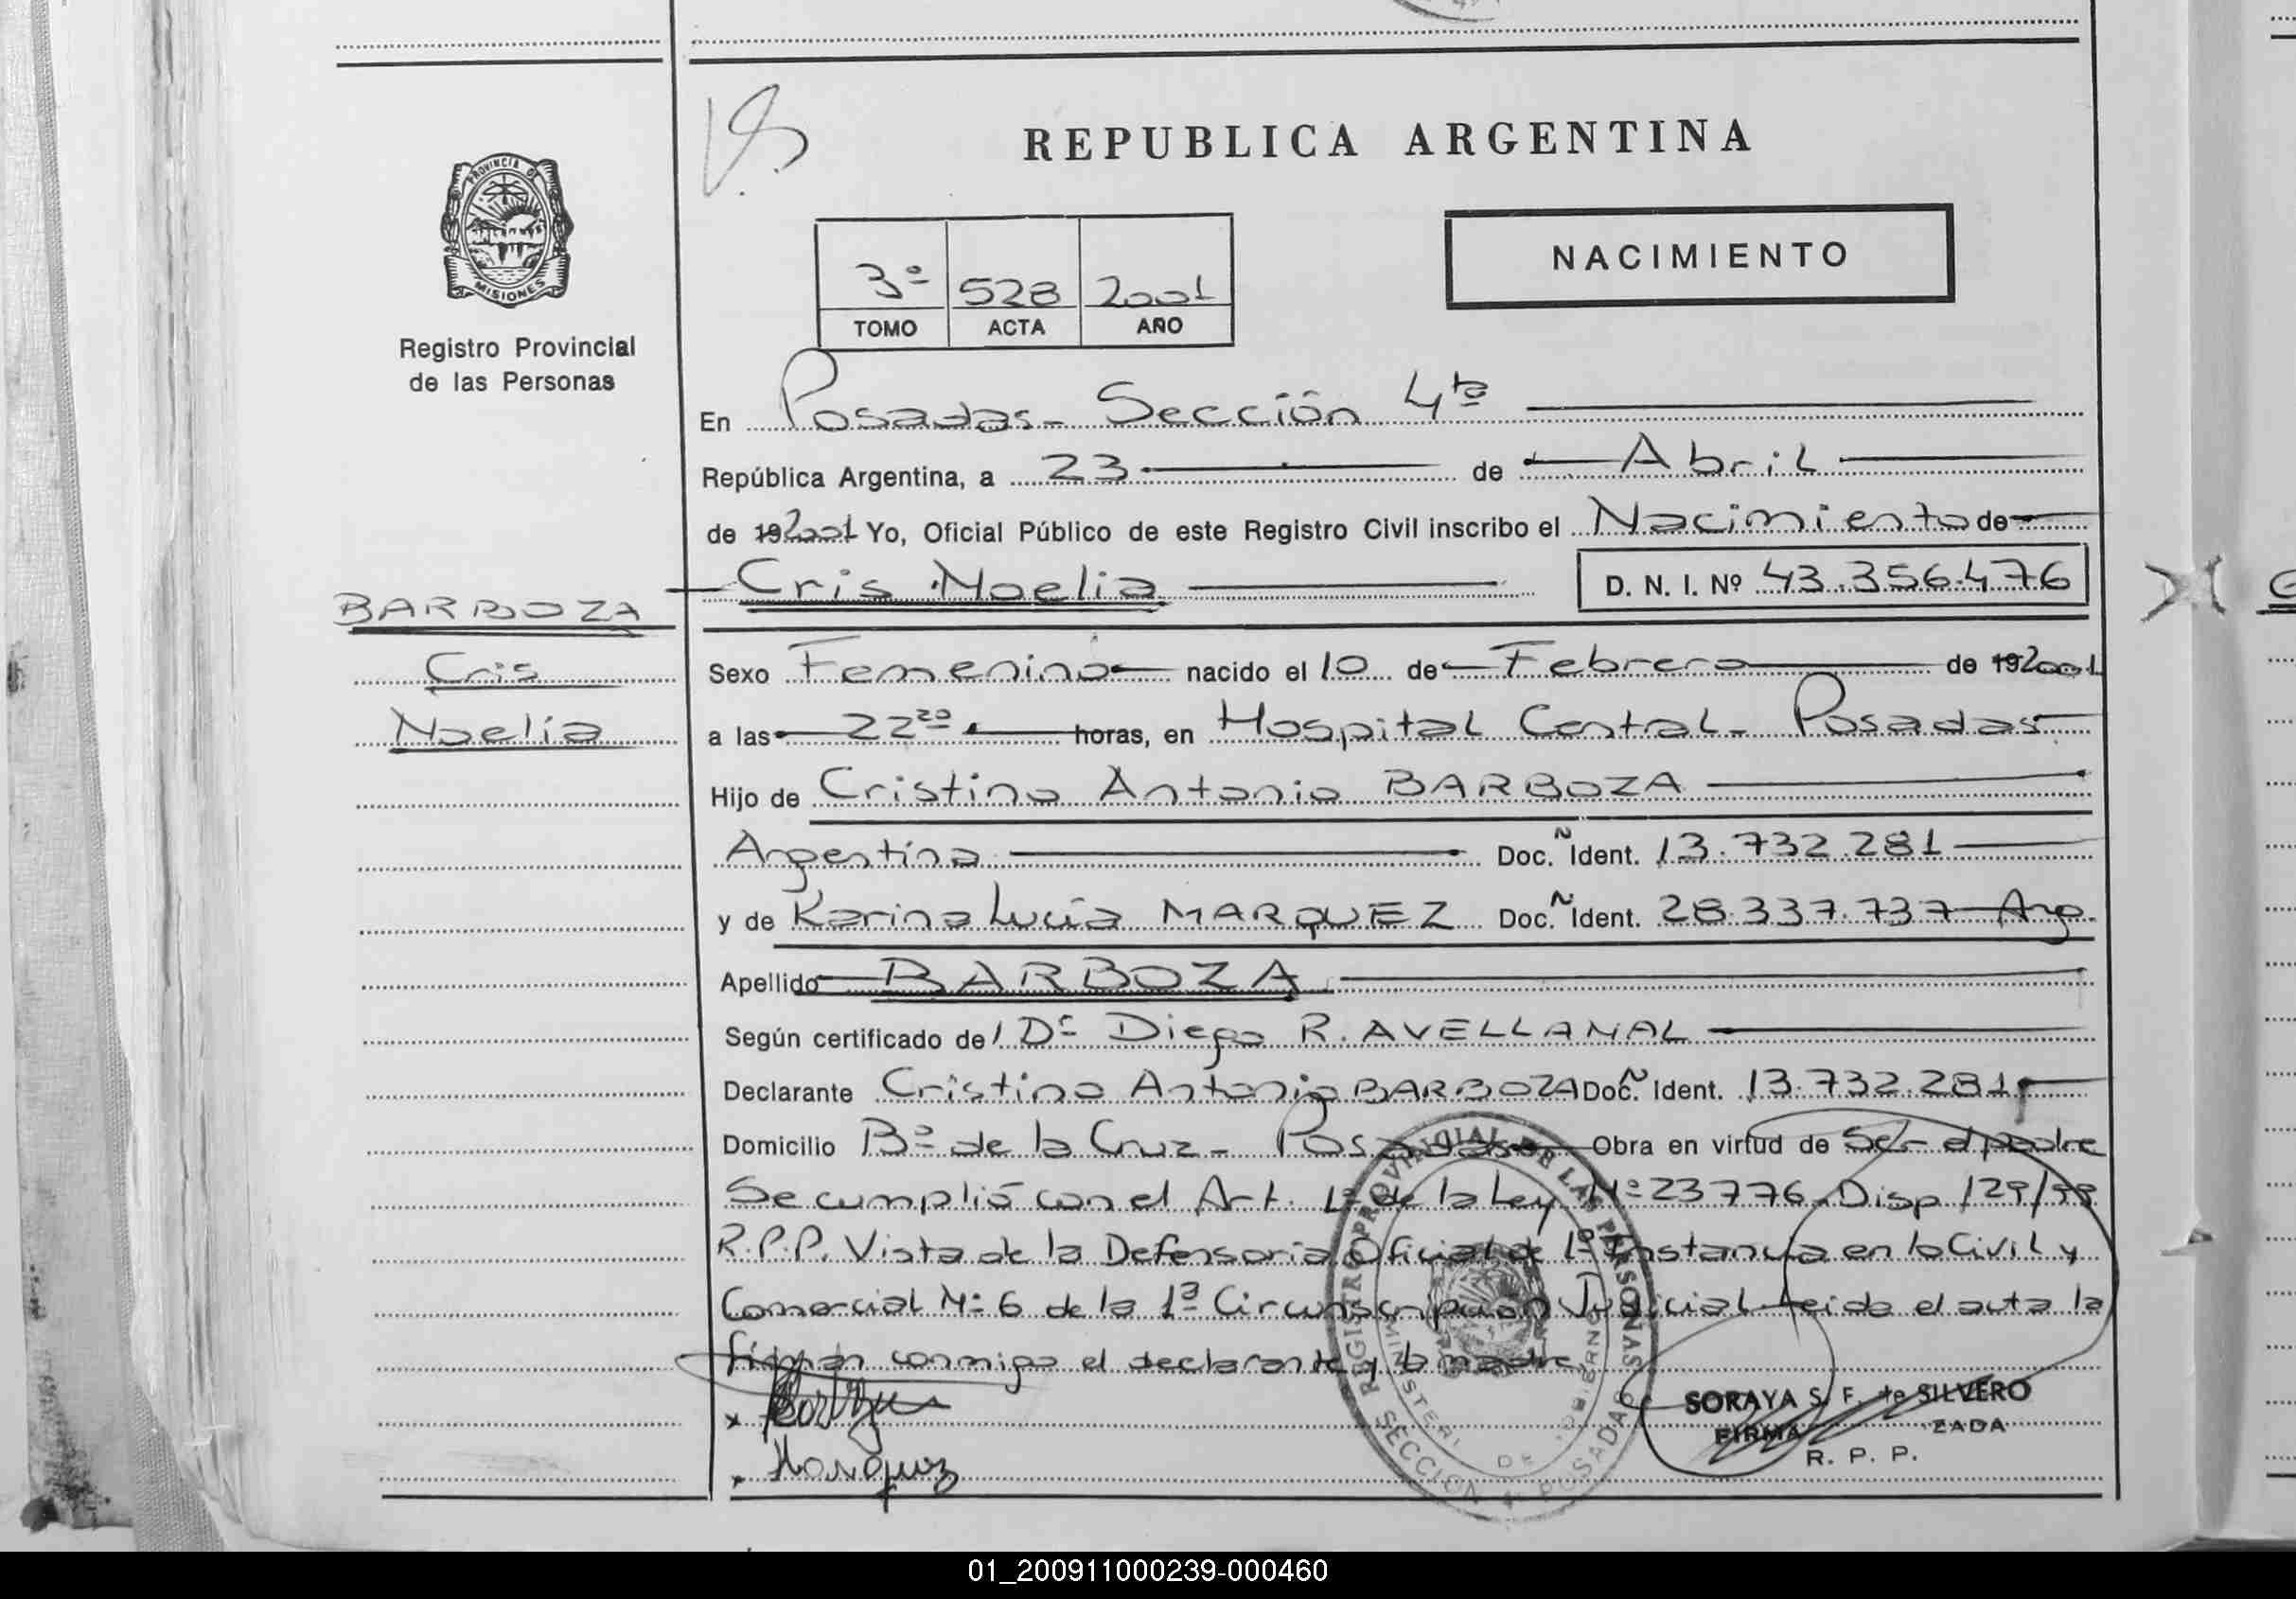 REPUBLICA ARGENTINA
PROVINCIA DE
MISIONES
Registro Provincial
de las Personas
NACIMIENTO
3º 528 2001
TOMO ACTA AÑO
En Posadas - Sección 4ta
República Argentina, a 23 de Abril
de 192001 Yo, Oficial Público de este Registro Civil inscribo el Nacimiento de
Cris Noelia D. N. I. Nº 43.356.476
BARBOZA
Cris
Noelia
Sexo Femenino nacido el 10 de Febrero de 192001
a las 22 20 horas, en Hospital Central - Posadas
Hijo de Cristino Antonio BARBOZA
Argentina Doc. Ident. 13.732.281
y de Karina Lucía MARQUEZ Doc. Ident. 28.337.737 Arg.
Apellido BARBOZA
Según certificado de l Dr Diego R. AVELLANAL
Declarante Cristino Antonio BARBOZA Doc. Ident. 13.732.281
Domicilio Bº de la Cruz - Posadas Obra en virtud de Ser el padre
Se cumplió con el Art. 1º de la Ley Nº 23776 Disp 129/99
R.P.P. Vista de la Defensoria Oficial de 1º Instancia en lo Civil y
Comercial Nº 6 de la 1ª Circunscripcion Judicial leida el acta la
firman conmigo el declarante y la madre
REGISTRO PROVINCIAL DE LAS PERSONAS
MINISTERI DE GOBIERNO
SECCION 4 POSADAS
x
Marquez
SORAYA S. F. de SILVERO
FIRMA ZADA
R. P. P.
01_200911000239-000460